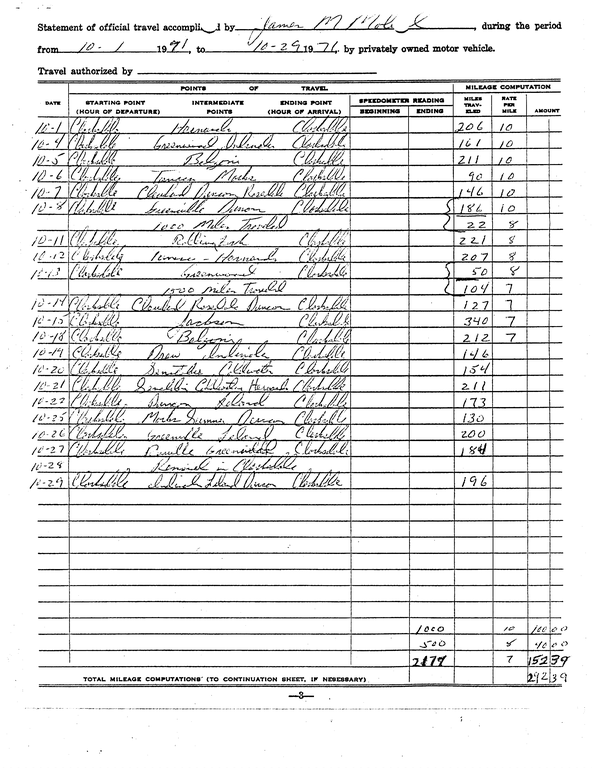 Statement of official travel accompli d by James M Mohead, during the period
from 10-1 1971, to 10-29 1971, by privately owned motor vehicle.
Travel authorized by
POINTS OF TRAVEL MILEAGE COMPUTATION
DATE STARTING POINT (HOUR OF DEPARTURE) INTERMEDIATE POINTS ENDING POINT (HOUR OF ARRIVAL) SPEEDOMETER READING BEGINNING ENDING MILES TRAV-ELED RATE PER MILE AMOUNT
10-1 Clarksdale Hernando Clarksdale 206 10
10-4 Clarksdale Greenwood Indianola Clarksdale 161 10
10-5 Clarksdale Belzoni Clarksdale 211 10
10-6 Clarksdale Tunica Marks Clarksdale 90 10
10-7 Clarksdale Cleveland Duncan Rosedale Clarksdale 146 10
10-8 Clarksdale Greenville Duncan Clarksdale 186 10
1000 Miles Traveled 22 8
10-11 Clarksdale Rolling Fork Clarksdale 221 8
10-12 Clarksdale Hernando Clarksdale 207 8
10-13 Clarksdale Greenwood Clarksdale 50 8
1500 Miles Traveled 104 7
10-14 Clarksdale Cleveland Rosedale Duncan Clarksdale 127 7
10-15 Clarksdale Jackson Clarksdale 340 7
10-18 Clarksdale Belzoni Clarksdale 212 7
10-19 Clarksdale Drew Indianola Clarksdale 146
10-20 Clarksdale Senatobia Coldwater Clarksdale 154
10-21 Clarksdale Hernando Clarksdale 211
10-22 Clarksdale Duncan Leland Clarksdale 173
10-25 Clarksdale Marks Sumner Duncan Clarksdale 130
10-26 Clarksdale Greenville Leland Clarksdale 200
10-27 Clarksdale Greenwood Clarksdale 184
10-28 Remained in Clarksdale
10-29 Clarksdale Indianola Leland Duncan Clarksdale 196
1000 10 100 00
500 8 40 00
2177 7 152 39
TOTAL MILEAGE COMPUTATIONS (TO CONTINUATION SHEET, IF NESESSARY) 292 39
—3—